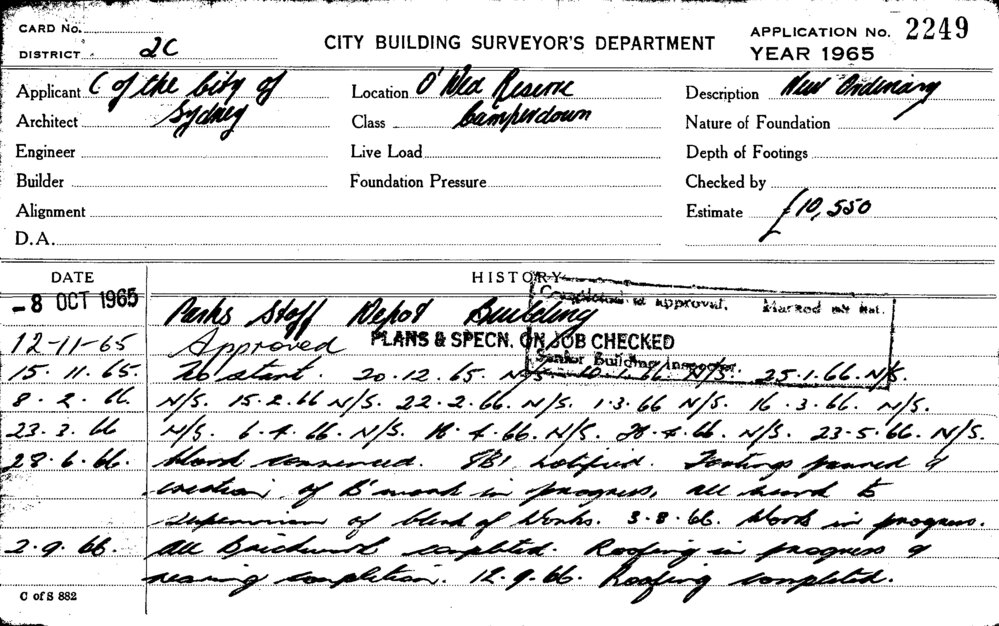 CARD No.
DISTRICT 2C
CITY BUILDING SURVEYOR'S DEPARTMENT
APPLICATION No. 2249
YEAR 1965
Applicant C of the City of Sydney
Location O'Dea Reserve Camperdown
Description New Ordinary
Architect
Class
Nature of Foundation
Engineer
Live Load
Depth of Footings
Builder
Foundation Pressure
Checked by
Alignment
Estimate £10,550
D.A.
DATE
HISTORY
-8 OCT 1965 Parks Staff Depot Building
Completion as approval. Marked off list.
12-11-65 Approved PLANS & SPECN. ON JOB CHECKED
Senior Building Inspector
15.11.65. To start. 20.12.65. N/S. 10.1.66 N/S. 25.1.66 N/S.
8.2.66. N/S. 15.2.66 N/S. 22.2.66. N/S. 1.3.66 N/S. 16.3.66. N/S.
23.3.66 N/S. 6.4.66. N/S. 18.4.66. N/S. 4.66. N/S. 23-5-66. N/S.
28.6.66. Work commenced. notified. Footings poured &
erection of B'work in progress, all work to
supervision of Clerk of Works. 3.8.66. Work in progress.
2.9.66. All Brickwork completed. Roofing in progress &
nearing completion. 12.9.66. Roofing completed.
C of S 882